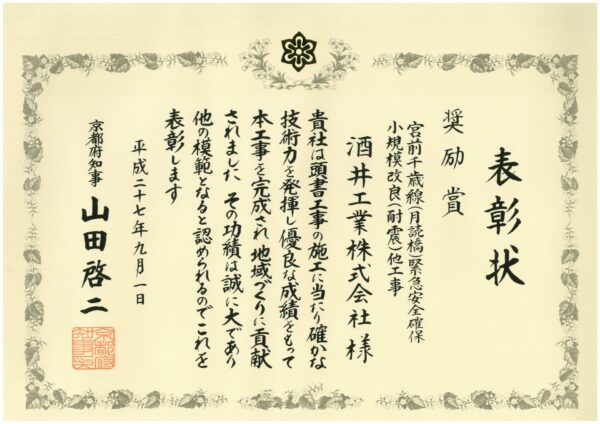 表彰状
奨励賞
宮前千歳線(月読橋)緊急安全確保
小規模改良(耐震)他工事
酒井工業株式会社様
貴社は頭書工事の施工に当たり確かな
技術力を発揮し優良な成績をもって
本工事を完成され地域づくりに貢献
されました その功績は誠に大であり
他の模範となると認められるのでこれを
表彰します
平成二十七年九月一日
京都府知事 山田啓二
京都府知事